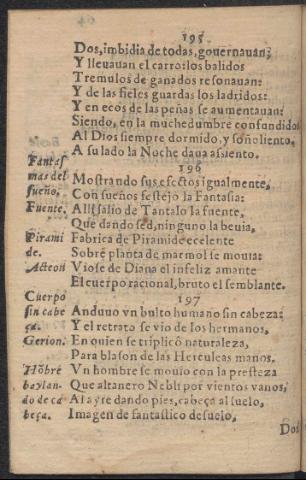 195
Dos, imbidia de todas, gouernauan;
Y lleuauan el carro: los balidos
Tremulos de ganados resonauan:
Y de las fieles guardas los ladridos:
Y en ecos de las peñas se aumentauan:
Siendo, en la muchedumbre confundido
Al Dios siempre dormido, y soñoliento,
A su lado la Noche daua assiento.
196
Fantas
mas del
sueño,
Fuente.
Pirami
de.
Acteon
Mostrando sus efectos igualmente,
Con sueños festejo la Fantasia:
Alli salio de Tantalo la fuente,
Que dando sed, ninguno la beuia,
Fabrica de Piramide ecelente
Sobre planta de marmol se mouia:
Viose de Diana el infeliz amante
El cuerpo racional, bruto el semblante.
197
Cuerpo
sin cabe
ça.
Gerion.
Hõbre
baylan-
do de ca
beça.
Anduuo vn bulto humano sin cabeza:
Y el retrato se vio de los hermanos,
En quien se triplicó naturaleza,
Para blason de las Herculeas manos.
Vn hombre se mouio con la presteza
Que altanero Nebli por vientos vanos,
Al ayre dando pies, cabeça al suelo,
Imagen de fantastico desuelo,
Dos